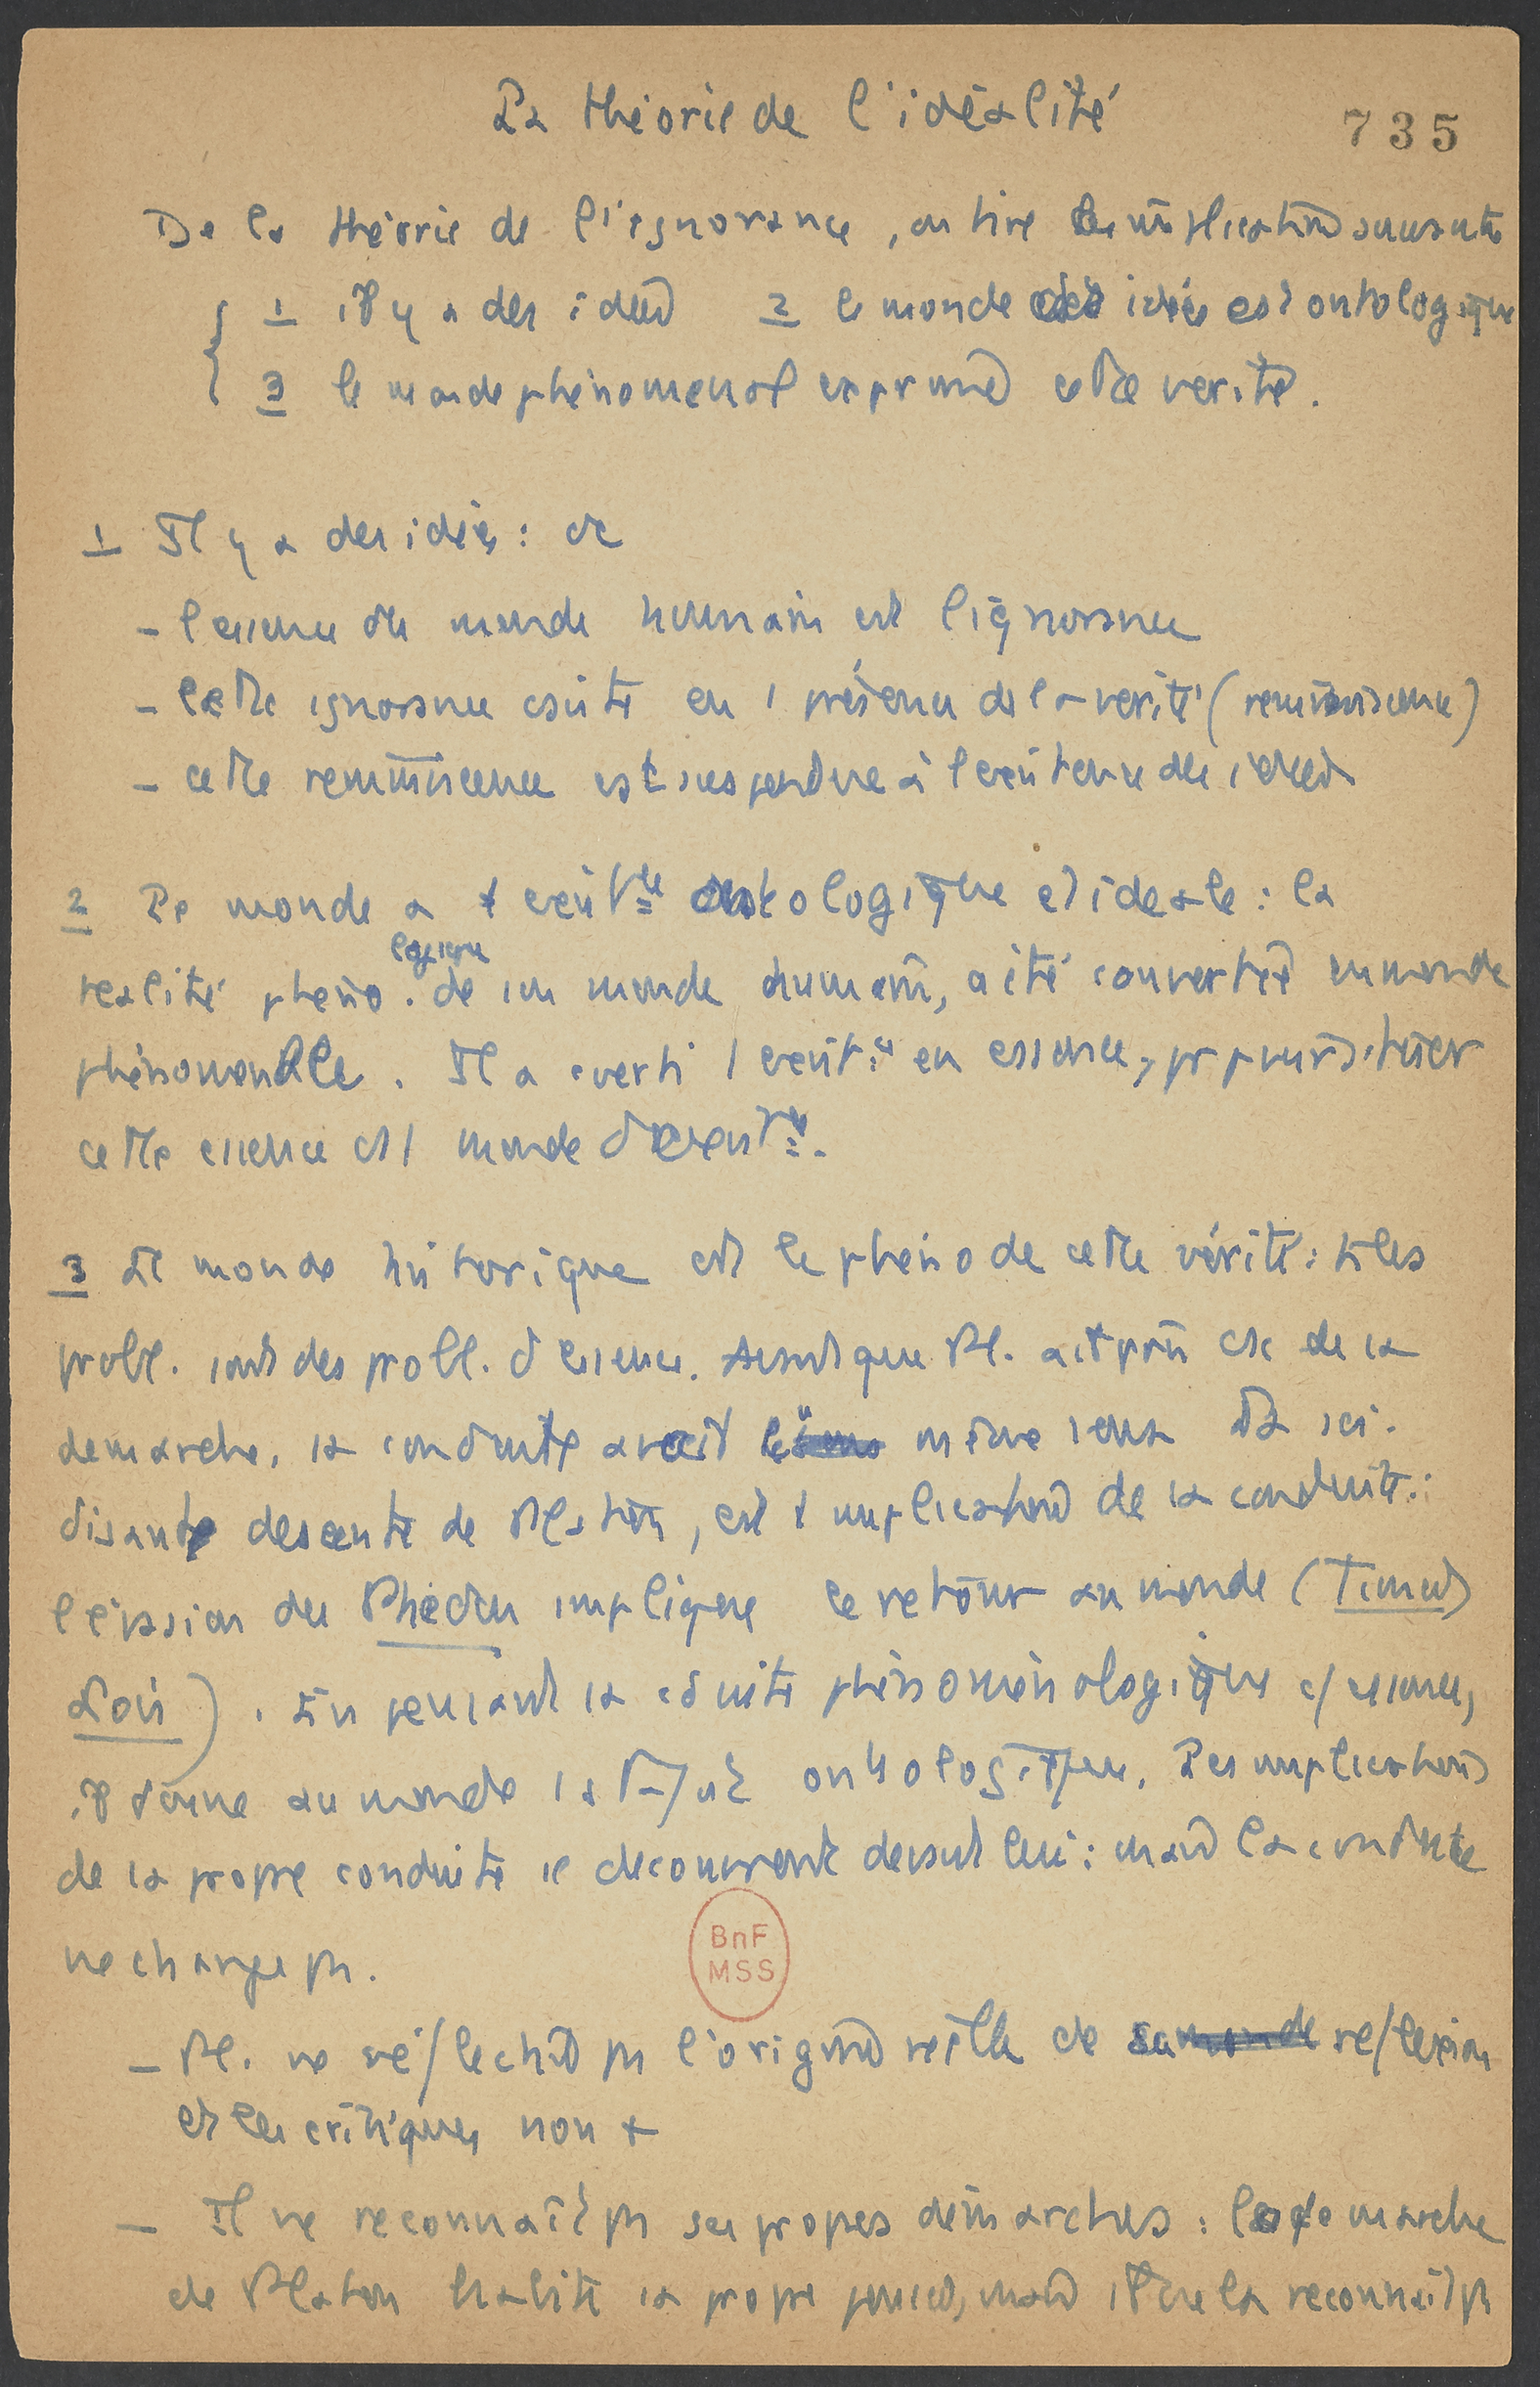 La théorie de l'idéalité
735
De la théorie de l'ignorance, on tire les implications suivantes
1 il y a des idées 2 le monde des idées est ontologique
3 le monde phénoménal exprime cette vérité.
1 Il y a des idées : cc
- l'essence du monde humain est l'ignorance
- cette ignorance existe en / présence de la vérité (réminiscence)
- cette réminiscence est suspendue à l'existence des idées
2 Le monde a 1 ontologique et idéale : la
logique
réalité phéno. de son monde humain, a été convertie en monde
phénoménale. Il a converti l' en essence, pr
cette essence est / monde
3 Le monde historique est le phéno de cette vérité : ts les
probl. sont des probl. d'essence. Avant que Pl. ait pris csc de sa
démarche, sa conduite avait le même sens La soi-
disante descente de Platon, est 1 implication de sa conduite :
l'évasion du Phédon implique le retour au monde (Timée
Lois). En pensant sa conduite phénoménologique c/ essence,
il donne au monde sa ontologique. Les implications
de sa propre conduite se découvrent devant lui : mais la conduite
ne change ps.
- Pl. ne réfléchit ps l'origine réelle de sa monde réflexion
et les critiques non +
- Il ne reconnaît ps ses propres démarches : la démarche
de Platon habite sa propre pensée, mais il ne la reconnaît ps
BnF
MSS